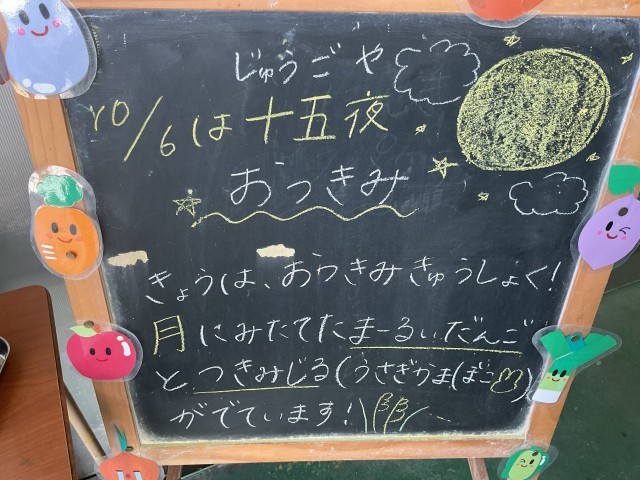 じゅうごや
10/6は十五夜
おつきみ
きょうは、おつきみきゅうしょく!
月にみたてたまーるぃだんご
とつきみじる(うさぎかまぼこ)
がでています!